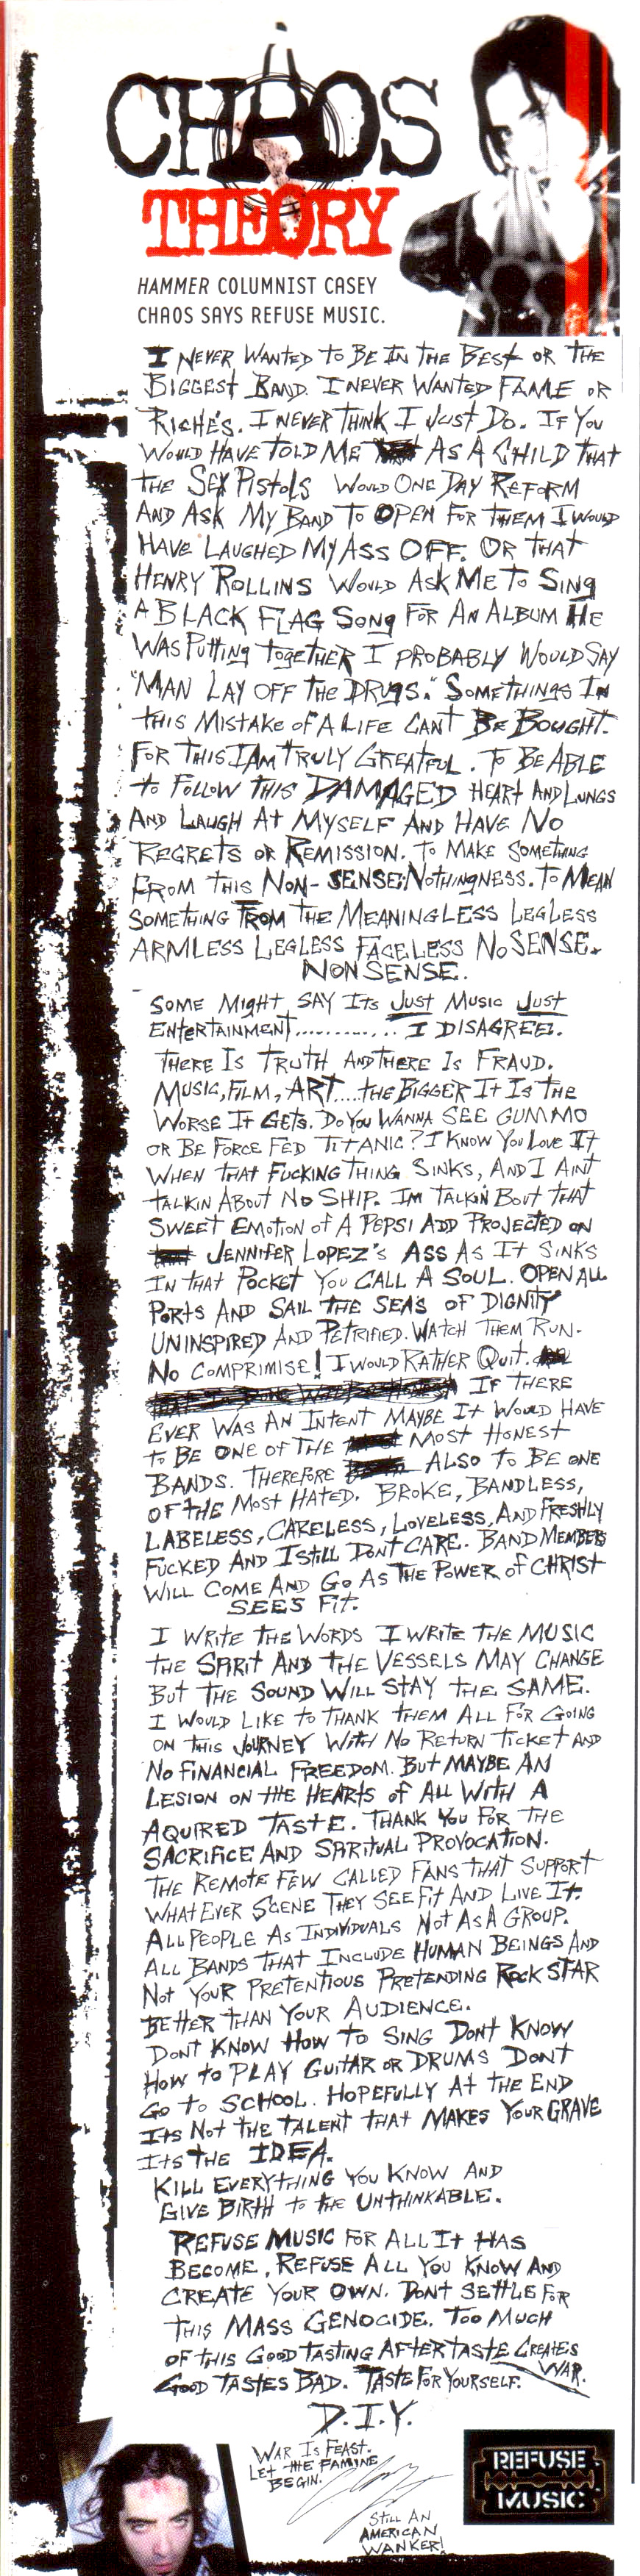 CHAOS
THEORY
HAMMER COLUMNIST CASEY
CHAOS SAYS REFUSE MUSIC.
I NEVER WANTED TO BE IN THE BEST OR THE
BIGGEST BAND. I NEVER WANTED FAME OR
RICHE'S. I NEVER THINK I JUST DO. IF YOU
WOULD HAVE TOLD ME AS A CHILD THAT
THE SEX PISTOLS WOULD ONE DAY REFORM
AND ASK MY BAND TO OPEN FOR THEM I WOULD
HAVE LAUGHED MY ASS OFF. OR THAT
HENRY ROLLINS WOULD ASK ME TO SING
A BLACK FLAG SONG FOR AN ALBUM HE
WAS PUTTING TOGETHER I PROBABLY WOULD SAY
"MAN LAY OFF THE DRUGS." SOMETHINGS IN
THIS MISTAKE OF A LIFE CANT BE BOUGHT.
FOR THIS I AM TRULY GREATFUL. TO BE ABLE
TO FOLLOW THIS DAMAGED HEART AND LUNGS
AND LAUGH AT MYSELF AND HAVE NO
REGRETS OR REMISSION. TO MAKE SOMETHING
FROM THIS NON-SENSE; NOTHINGNESS. TO MEAN
SOMETHING FROM THE MEANINGLESS LEGLESS
ARMLESS LEGLESS FACELESS NO SENSE.
NONSENSE.
SOME MIGHT SAY ITS JUST MUSIC JUST
ENTERTAINMENT............ I DISAGREE.
THERE IS TRUTH AND THERE IS FRAUD.
MUSIC, FILM, ART....THE BIGGER IT IS THE
WORSE IT GETS. DO YOU WANNA SEE GUMMO
OR BE FORCE FED TITANIC? I KNOW YOU LOVE IT
WHEN THAT FUCKING THING SINKS, AND I AINT
TALKIN ABOUT NO SHIP. IM TALKIN BOUT THAT
SWEET EMOTION OF A PEPSI ADD PROJECTED ON
JENNIFER LOPEZ'S ASS AS IT SINKS
IN THAT POCKET YOU CALL A SOUL. OPEN ALL
PORTS AND SAIL THE SEAS OF DIGNITY
UNINSPIRED AND PETRIFIED. WATCH THEM RUN.
NO COMPRIMISE! I WOULD RATHER QUIT.
IF THERE
EVER WAS AN INTENT MAYBE IT WOULD HAVE
TO BE ONE OF THE MOST HONEST
BANDS. THEREFORE ALSO TO BE ONE
OF THE MOST HATED. BROKE, BANDLESS,
LABELESS, CARELESS, LOVELESS, AND FRESHLY
FUCKED AND I STILL DONT CARE. BAND MEMBERS
WILL COME AND GO AS THE POWER OF CHRIST
SEES FIT.
I WRITE THE WORDS I WRITE THE MUSIC
THE SPIRIT AND THE VESSELS MAY CHANGE
BUT THE SOUND WILL STAY THE SAME.
I WOULD LIKE TO THANK THEM ALL FOR GOING
ON THIS JOURNEY WITH NO RETURN TICKET AND
NO FINANCIAL FREEDOM. BUT MAYBE AN
LESION ON THE HEARTS OF ALL WITH A
AQUIRED TASTE. THANK YOU FOR THE
SACRIFICE AND SPIRITUAL PROVOCATION.
THE REMOTE FEW CALLED FANS THAT SUPPORT
WHAT EVER SCENE THEY SEE FIT AND LIVE IT.
ALL PEOPLE AS INDIVIDUALS NOT AS A GROUP.
ALL BANDS THAT INCLUDE HUMAN BEINGS AND
NOT YOUR PRETENTIOUS PRETENDING ROCK STAR
BETTER THAN YOUR AUDIENCE.
DONT KNOW HOW TO SING DONT KNOW
HOW TO PLAY GUITAR OR DRUMS DONT
GO TO SCHOOL. HOPEFULLY AT THE END
ITS NOT THE TALENT THAT MAKES YOUR GRAVE
ITS THE IDEA.
KILL EVERYTHING YOU KNOW AND
GIVE BIRTH TO THE UNTHINKABLE.
REFUSE MUSIC FOR ALL IT HAS
BECOME. REFUSE ALL YOU KNOW AND
CREATE YOUR OWN. DONT SETTLE FOR
THIS MASS GENOCIDE. TOO MUCH
OF THIS GOOD TASTING AFTERTASTE CREATES
WAR.
GOOD TASTES BAD. TASTE FOR YOURSELF.
D.I.Y.
WAR IS FEAST.
LET THE FAMINE
BEGIN.
STILL AN
AMERICAN
WANKER!
REFUSE
MUSIC